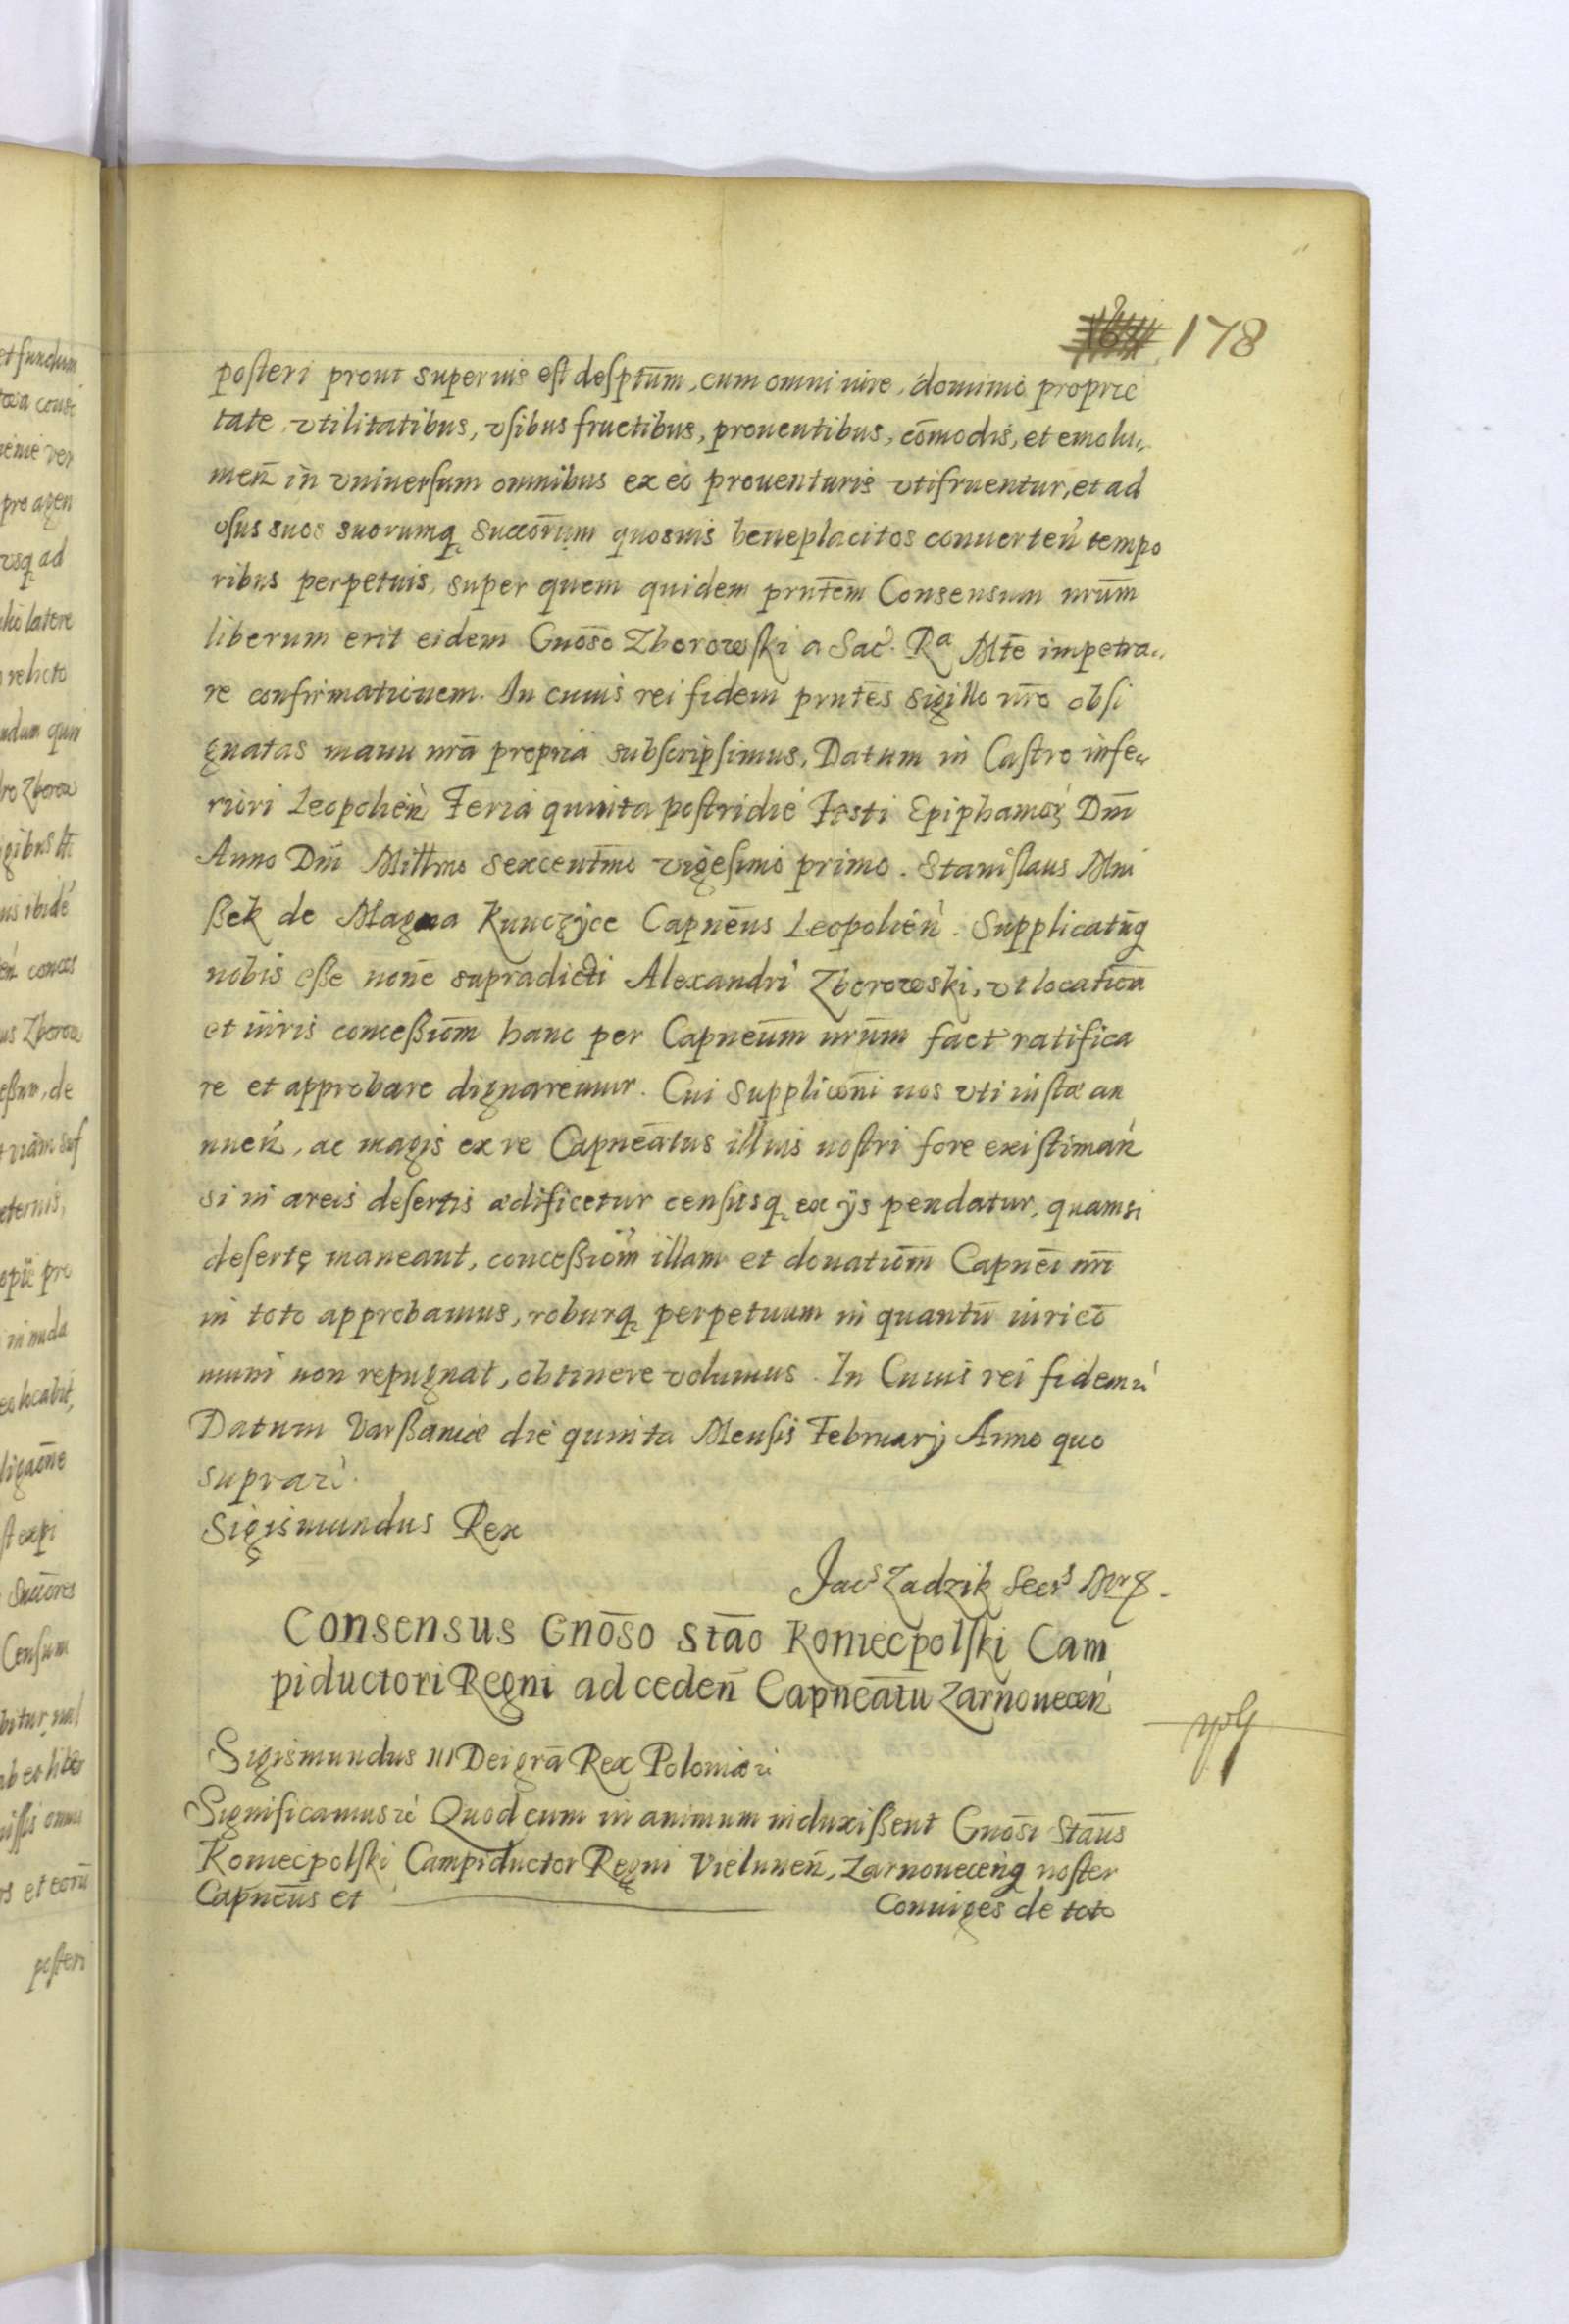 178
posteri prout superius est desptūm, cum omni iure, dominio proprie
tate, vtilitatibus, vsibus fructibus, prouentibus, cōmodis, et emolu„
meñ in vniuersum omnibus ex eo prouenturis vtifruentur, et ad
vsus suos suorumq succorūm quosuis beneplacitos conuerteń tempo
ribus perpetuis, super quem quidem prntēm Consensum nrūm
liberum erit eidem Gnōso Zborowski a Sac. Ra Mtē impetra„
re confirmationem. In cuius rei fidem prntēs sigillo nrō obsi
gnatas manu nrā propria subscripsimus, Datum in Castro infe„
riori Leopolień Feria quinta postridie Festi Epiphamoz Dnī
Anno Dnī Millmo sexcentmō vigesimo primo. Stanislaus Mni
ßek de Magna Kunczyce Capnēus Leopolień. Supplicatūq
nobis eße noīe supradicti Alexandri Zborowski, vt locatiōn
et iuris conceßiōm hanc per Capneūm nrūm fact ratifica
re et approbare dignaremur. Cui Supplicōni nos vti iustæ an
nueń, ac magis ex re Capneātus illius nostri fore existimań
si in areis desertis ædificetur censusq ex ijs pendatur, quam si
desertę maneant, conceßiōm illam et donatiōm Capneī nrī
in toto approbamus, roburq perpetuum in quantū iuri cō
muni non repugnat, obtinere volumus. In Cuius rei fidem ⁊
Datum Varßauiæ die quinta Mensis February Anno quo
supra ⁊.
Sigismundus Rex
Jacs Zadzik Secrs Mrg.
Consensus Gnōso Stāo Koniecpolski Cam
piductori Regni ad cedeñ Capneātu Zarnouecen
Sigismundus III Dei grā Rex Poloniæ ⁊
Significamus ⁊ Quod cum in animum induxißent Gnōsi Stāus
Koniecpolski Campiductor Regni Vieluneñ, Zarnoueceńq noster
Capneūs et Coniuges de toto